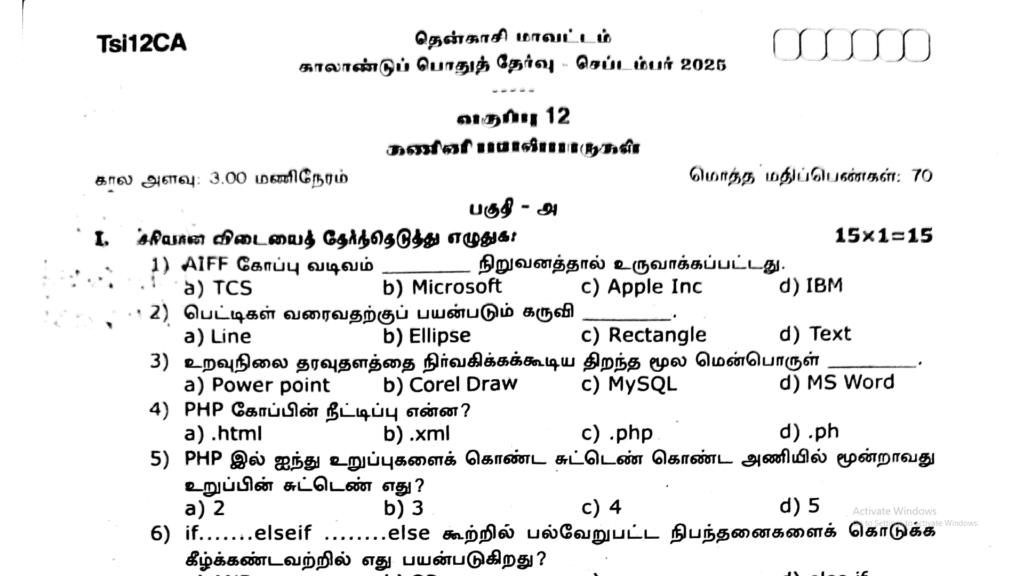 Tsi12CA
தென்காசி மாவட்டம்
காலாண்டுப் பொதுத் தேர்வு - செப்டம்பர் 2025
-----
வகுப்பு 12
கணினி பயன்பாடுகள்
கால அளவு: 3.00 மணிநேரம் மொத்த மதிப்பெண்கள்: 70
பகுதி - அ
I. சரியான விடையைத் தேர்ந்தெடுத்து எழுதுக: 15×1=15
1) AIFF கோப்பு வடிவம் ________ நிறுவனத்தால் உருவாக்கப்பட்டது.
a) TCS b) Microsoft c) Apple Inc d) IBM
2) பெட்டிகள் வரைவதற்குப் பயன்படும் கருவி ________.
a) Line b) Ellipse c) Rectangle d) Text
3) உறவுநிலை தரவுதளத்தை நிர்வகிக்கக்கூடிய திறந்த மூல மென்பொருள் ________.
a) Power point b) Corel Draw c) MySQL d) MS Word
4) PHP கோப்பின் நீட்டிப்பு என்ன?
a) .html b) .xml c) .php d) .ph
5) PHP இல் ஐந்து உறுப்புகளைக் கொண்ட சுட்டெண் கொண்ட அணியில் மூன்றாவது
உறுப்பின் சுட்டெண் எது?
a) 2 b) 3 c) 4 d) 5
Activate Windows
Go to Settings to activate Windows.
6) if.......elseif ........else கூற்றில் பல்வேறுபட்ட நிபந்தனைகளைக் கொடுக்க
கீழ்க்கண்டவற்றில் எது பயன்படுகிறது?